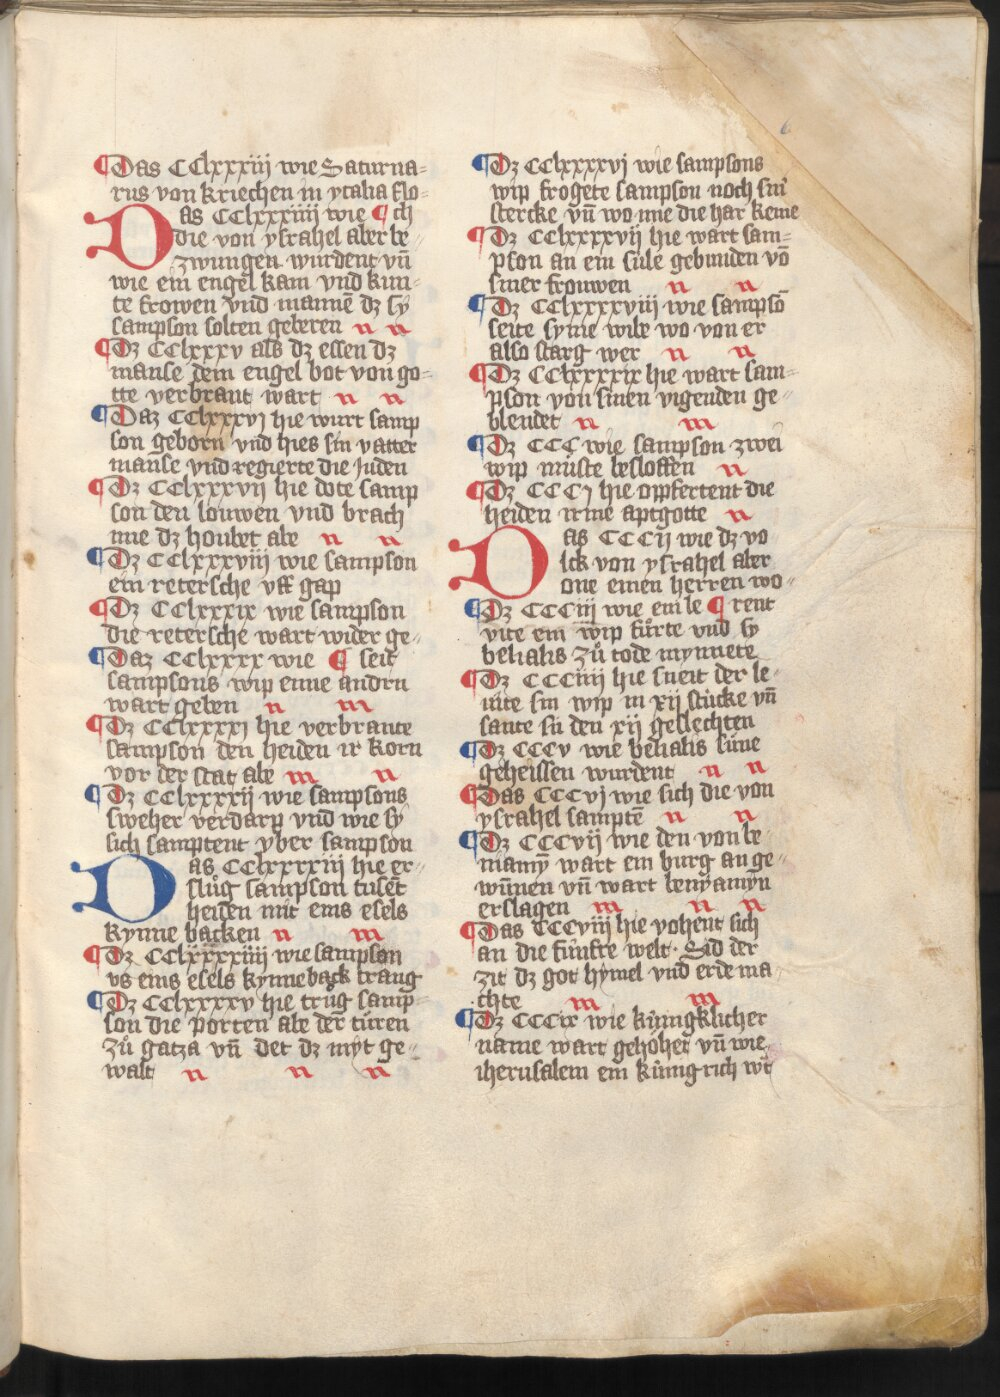 ¶ Das CClxxxiii wie Saturna=
rus von kriechen in ytalia flo=
Das CClxxxiiii wie ¶ ch
die von ysrahel aber be=
zwungen wurdent vn̄
wie ein engel kam vnd kun=
te frowen vnd mannē dz sy
sampson solten geberen n n
¶ Dz CClxxxv als dz essen dz
manse dem engel bot von go=
tte verbrant wart n n
¶ Daz CClxxxvi hie wurt samp
son geborn vnd hies sin vatter
manse vnd regierte die Juden
¶ Dz CClxxxvij hie dote samp
son den louwen vnd brach
ime dz houbet abe n n
¶ Dz CClxxxviii wie sampson
ein retersche vff gap
¶ Dz CClxxxix wie sampson
die retersche wart wider ge=
¶ Daz CClxxxx wie ¶ seit
sampsons wip eime andrn
wart geben n m
¶ Dz CClxxxxi hie verbrante
sampson den heiden ir korn
vor der stat abe m n
¶ Dz CClxxxxii wie sampsons
sweher verdarp vnd wie sy
sich samptent vber sampson
Das CClxxxxiii hie er=
slůg sampson tusēt
heiden mit eins esels
kynne backen n m
¶ Dz CClxxxxiiii wie sampson
vs eins esels kynneback trang
¶ Dz CClxxxxv hie trůg samp=
son die porten abe der túren
zů gatza vn̄ det dz myt ge=
walt n n n
¶ Dz CClxxxxvi wie sampsons
wip frogete sampson noch sinr
stercke vn̄ wo ime die har keme
¶ Dz CClxxxxvii hie wart sam=
pson an ein sule gebunden vō
siner frouwen n n
¶ Dz CClxxxxviii wie sampsō
seite syme wibe wo von er
also starg wer n n
¶ Dz CClxxxxix hie wart sam=
pson von sinen vigenden ge=
blendet n m
¶ Dz CCC wie sampson zwei
wip můste besloffen n
¶ Dz CCCj hie oppfertent die
heiden irme aptgotte n
Das CCCii wie dz vo
lck von ysrahel aber
one einen herren wo=
¶ Dz CCCiii wie ein le ¶ rent
vite ein wip fůrte vnd sy
belialis zů tode mynnete
¶ Dz CCCiiii hie sneit der le=
uite sin wip in xij stucke vn̄
sante sü den xij geslechten
¶ Dz CCCv wie belialis süne
geheissen wurdent n n
¶ Das CCCvj wie sich die von
ysrahel samptē n n
¶ Dz CCCvii wie den von be=
niamȳ wart ein burg an ge=
wūnen vn̄ wart benyamyn
erslagen m n n
¶ Das CCCviii hie vohent sich
an die fúnfte welt. Sid der
zit dz got hymel vnd erde ma=
chte m m
¶ Dz CCCix wie kúnigklicher
name wart gehöhet vn̄ wie
iherusalem ein kúnigrich wt